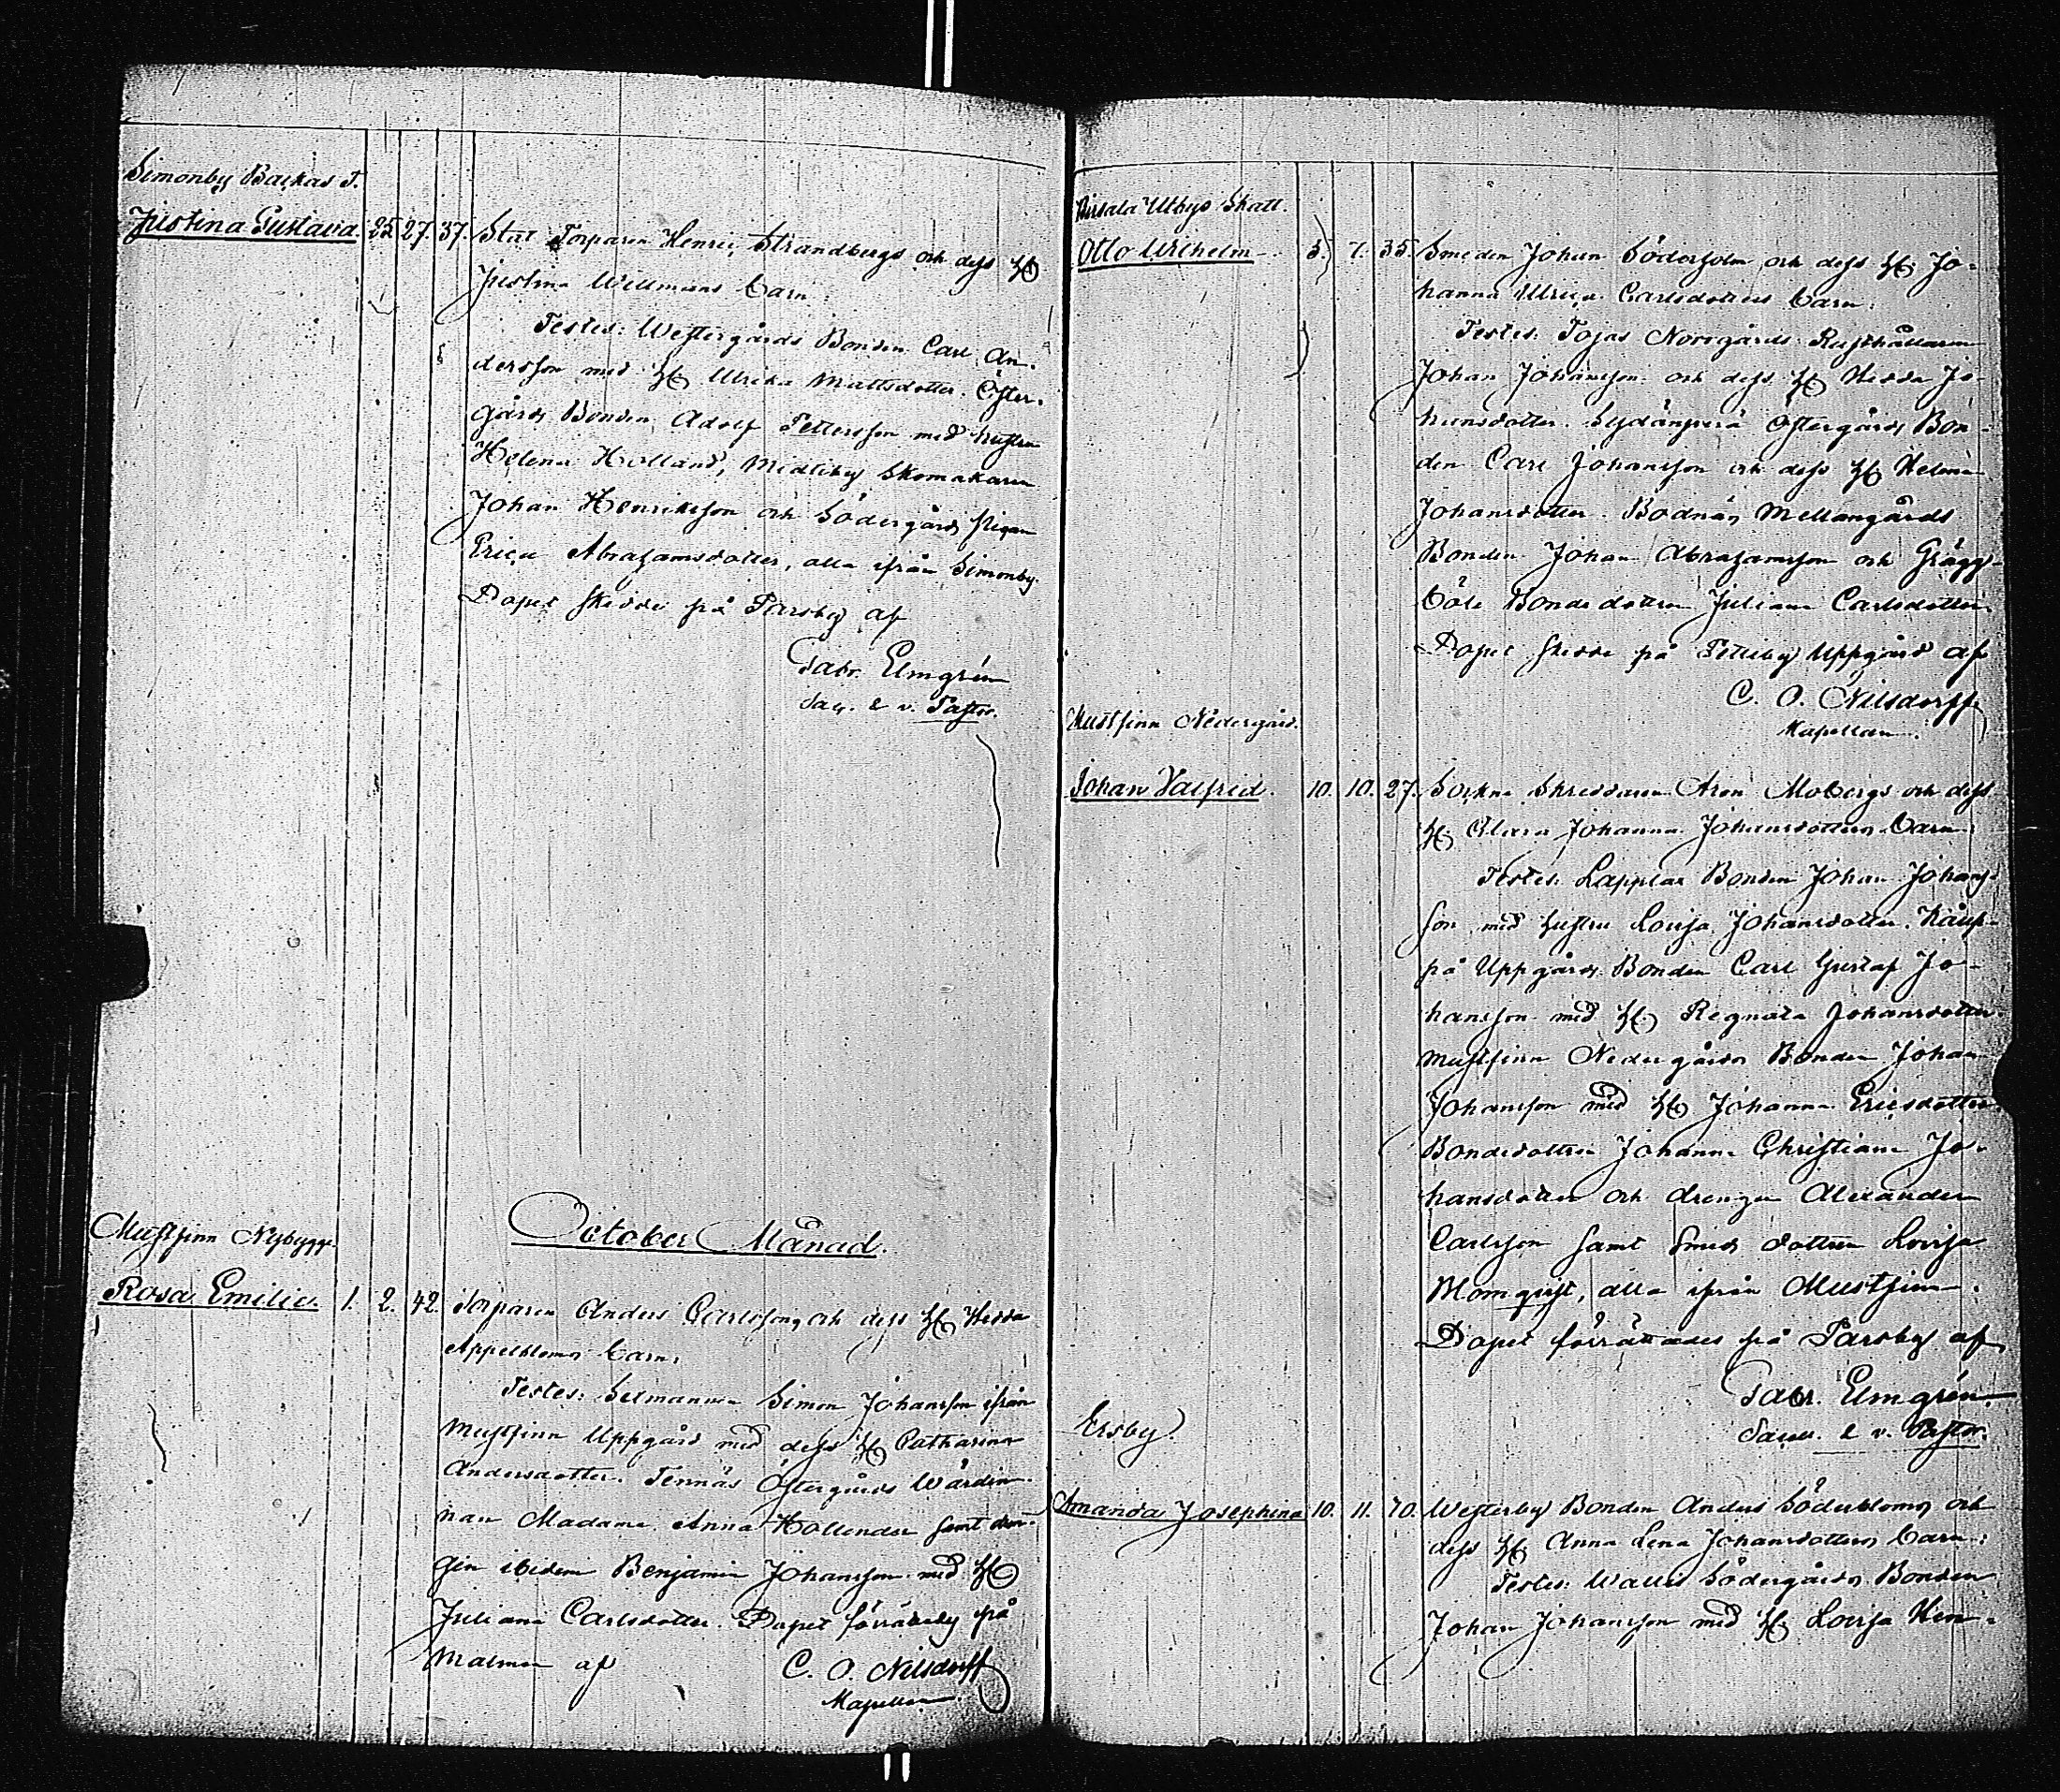 Simonby Backas T.
Justina Gustava. 25. 27. 37. Stat Torparen Henric Strandbergs och dess H
Justina Willmans barn:
Testes: Westergårds Bonden Carl An-
dersson med H Ulrika Mattsdotter. Öster-
gårds Bonden Adolf Pettersson med hustru
Helena Holland, Midliby Skomakaren
Johan Henriksson och Södergårds pigan
Erica Abrahamsdotter, alla ifrån Simonby.
Dopet skedde på Parsby af
Gabr. Elmgrén
Sac. & v. Pastor.
October Månad.
Mustfinn Nybygge
Rosa Emilie. 1. 2. 42. Torparen Anders Carlssons och dess H Hedda
Appelbloms barn:
Testes: Selmannen Simon Johansson ifrån
Mustfinn Uppgård med dess H Catharina
Andersdotter. Tennäs Östergårds Wärdin-
nan Madame Anna Hollender samt drän-
gen ibidem Benjamin Johansson med H
Juliana Carlsdotter. Dopet förrättades på
Malmen af C. O. Nilsdorff
Kapellan.
Utbys Skatt.
Otto Wilhelm 5. 7. 35. Smeden Johan Söderholm och dess H Jo-
hanna Ulrica Carlsdotters barn:
Testes: Tojas Norrgårds Rusthållaren
Johan Johansson och dess H Hedda Jo-
hansdotter. Östergårds Bon-
den Carl Johansson och dess H Helena
Johansdotter. Bodnäs Mellangårds
Bonden Johan Abrahamsson och Gräggs-
böle Bondedottren Juliana Carlsdotter.
Dopet skedde på Petteby Uppgård af
C. O. Nilsdorff
Kapellan.
Mustfinn Nedergård.
Johan Valfrid. 10. 10. 27. Sockne Skreddaren Aron Mobergs och dess
H Clara Johanna Johansdotters barn:
Testes: Lapplax Bonden Johan Johans-
son med hustru Lovisa Johansdotter.
på Uppgårds Bonden Carl Gustaf Jo-
hansson med H Regnala Johansdotter.
Mustfinn Nedergårds Bonden Johan
Johansson med H Johanna Ericsdotter
Bondedottren Johanna Christiana Jo-
hansdotter och drengen Alexander
Carlsson samt Smeds dottren Lovisa
Blomqvist, alla ifrån Mustfinn.
Dopet förrättades på Parsby af
Gabr. Elmgrén.
Sac. & v. Pastor.
Ersby.
Amanda Josephina 10. 11. 70. Westerby Bonden Anders Söderbloms och
dess H Anna Lena Johansdotters barn:
Testes: Walles Södergårds Bonden
Johan Johansson med H Lovisa Hen-